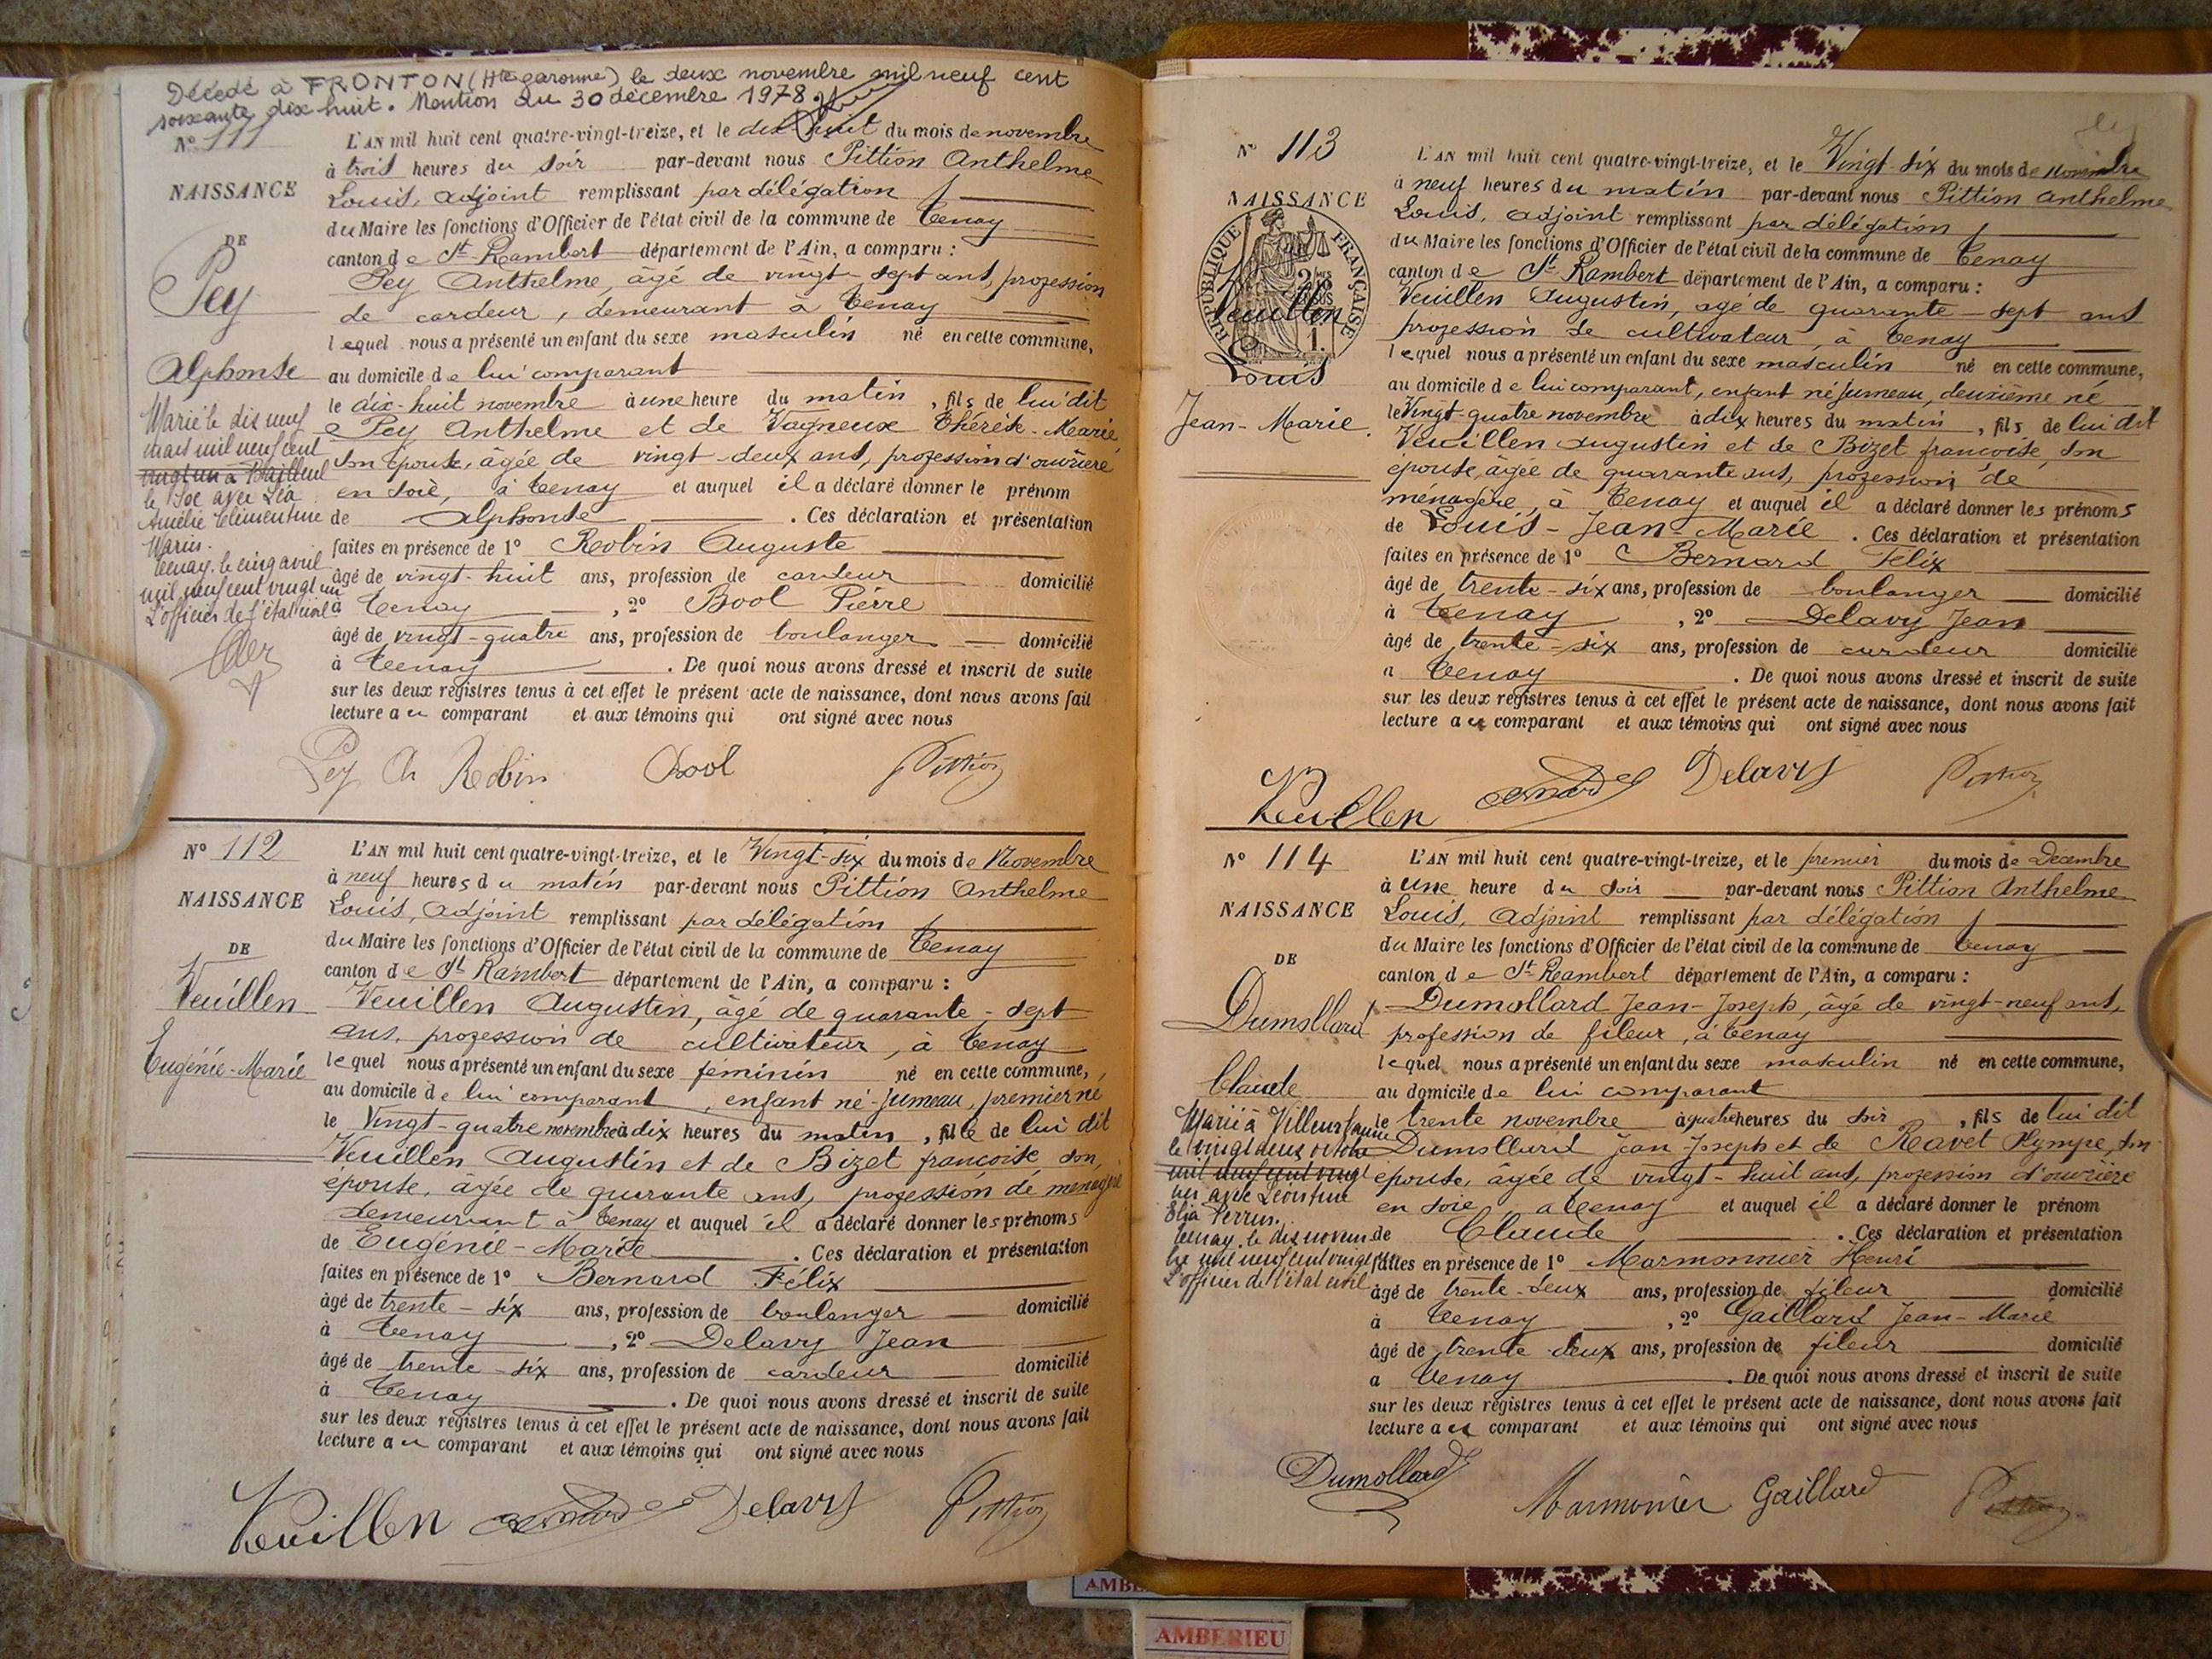 Décédé à FRONTON (Hte garonne) le deux novembre mil neuf cent
soixante dix huit. Mention du 30 décembre 1978.
N° 111
NAISSANCE
DE
Pey
Alphonse
Marié le dix neuf
mars mil neuf cent
vingt un à Bailleul
le Soc avec Léa
Amélie Clémentine
Warin.
Tenay, le cinq avril
mil neuf cent vingt un
L'officier de l'état civil
L'AN mil huit cent quatre-vingt-treize, et le dix huit du mois de novembre
à trois heures du soir par-devant nous Pittion Anthelme
Louis, adjoint remplissant par délégation
du Maire les fonctions d'Officier de l'état civil de la commune de Tenay
canton de St Rambert département de l'Ain, a comparu :
Pey Anthelme, âgé de vingt-sept ans, profession
de cardeur, demeurant à Tenay
lequel nous a présenté un enfant du sexe masculin né en cette commune,
au domicile de lui comparant
le dix-huit novembre à une heure du matin, fils de lui dit
Pey Anthelme et de Vagneux Thérèse-Marie
son épouse, âgée de vingt-deux ans, profession d'ouvrière
en soie, à Tenay et auquel il a déclaré donner le prénom
de Alphonse. Ces déclaration et présentation
faites en présence de 1° Robin Auguste
âgé de vingt-huit ans, profession de cardeur domicilié
à Tenay, 2° Bool Pierre
âgé de vingt-quatre ans, profession de boulanger domicilié
à Tenay. De quoi nous avons dressé et inscrit de suite
sur les deux registres tenus à cet effet le présent acte de naissance, dont nous avons fait
lecture au comparant et aux témoins qui ont signé avec nous
Pey Robin Bool Pittion
N° 112
NAISSANCE
DE
Veuillen
Eugénie-Marie
L'AN mil huit cent quatre-vingt-treize, et le Vingt-six du mois de Novembre
à neuf heures du matin par-devant nous Pittion Anthelme
Louis, adjoint remplissant par délégation
du Maire les fonctions d'Officier de l'état civil de la commune de Tenay
canton de St Rambert département de l'Ain, a comparu :
Veuillen Augustin, âgé de quarante-sept
ans, profession de cultivateur, à Tenay
lequel nous a présenté un enfant du sexe féminin né en cette commune,
au domicile de lui comparant, enfant né jumeau, premier né
le Vingt-quatre novembre à dix heures du matin, fille de lui dit
Veuillen Augustin et de Bizet françoise, son
épouse, âgée de quarante ans, profession de ménagère
demeurant à Tenay et auquel il a déclaré donner les prénoms
de Eugénie-Marie. Ces déclaration et présentation
faites en présence de 1° Bernard Félix
âgé de trente-six ans, profession de boulanger domicilié
à Tenay, 2° Delavy Jean
âgé de trente-six ans, profession de cardeur domicilié
à Tenay. De quoi nous avons dressé et inscrit de suite
sur les deux registres tenus à cet effet le présent acte de naissance, dont nous avons fait
lecture au comparant et aux témoins qui ont signé avec nous
Veuillen Bernard Delavy Pittion
N° 113
NAISSANCE
RÉPUBLIQUE FRANÇAISE
Veuillen
Louis
Jean-Marie.
L'AN mil huit cent quatre-vingt-treize, et le Vingt-six du mois de novembre
à neuf heures du matin par-devant nous Pittion Anthelme
Louis, adjoint remplissant par délégation
du Maire les fonctions d'Officier de l'état civil de la commune de Tenay
canton de St Rambert département de l'Ain, a comparu :
Veuillen Augustin, âgé de quarante-sept ans
profession de cultivateur, à Tenay
lequel nous a présenté un enfant du sexe masculin né en cette commune,
au domicile de lui comparant, enfant né jumeau, deuxième né
le Vingt-quatre novembre à dix heures du matin, fils de lui dit
Veuillen Augustin et de Bizet francoise, son
épouse, âgée de quarante ans, profession de
ménagère, à Tenay et auquel il a déclaré donner les prénoms
de Louis-Jean-Marie. Ces déclaration et présentation
faites en présence de 1° Bernard Félix
âgé de trente-six ans, profession de boulanger domicilié
à Tenay, 2° Delavy Jean
âgé de trente-six ans, profession de cardeur domicilié
à Tenay. De quoi nous avons dressé et inscrit de suite
sur les deux registres tenus à cet effet le présent acte de naissance, dont nous avons fait
lecture au comparant et aux témoins qui ont signé avec nous
Veuillen Bernard Delavy Pittion
N° 114
NAISSANCE
DE
Dumollard
Claude
Marié à Villeurbanne
le vingt deux octobre
mil neuf cent vingt
un avec Léontine
Elia Perrus.
Tenay, le dix novem
bre mil neuf cent vingt
L'officier de l'état civil
L'AN mil huit cent quatre-vingt-treize, et le premier du mois de Décembre
à une heure du soir par-devant nous Pittion Anthelme
Louis, adjoint remplissant par délégation
du Maire les fonctions d'Officier de l'état civil de la commune de Tenay
canton de St Rambert département de l'Ain, a comparu :
Dumollard Jean-Joseph, âgé de vingt-neuf ans,
profession de fileur, à Tenay
lequel nous a présenté un enfant du sexe masculin né en cette commune,
au domicile de lui comparant
le trente novembre à quatre heures du soir, fils de lui dit
Dumollard Jean Joseph et de Ravet Olympe, son
épouse, âgée de vingt-huit ans, profession d'ouvrière
en soie, à Tenay et auquel il a déclaré donner le prénom
de Claude. Ces déclaration et présentation
faites en présence de 1° Marmonnier Henri
âgé de trente-deux ans, profession de fileur domicilié
à Tenay, 2° Gaillard Jean-Marie
âgé de trente deux ans, profession de fileur domicilié
à Tenay. De quoi nous avons dressé et inscrit de suite
sur les deux registres tenus à cet effet le présent acte de naissance, dont nous avons fait
lecture au comparant et aux témoins qui ont signé avec nous
Dumollard Marmonier Gaillard Pittion
AMBE
AMBERIEU